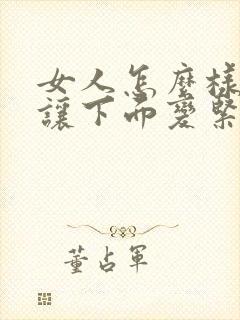 女人怎麼樣
讓下面變緊
董占軍